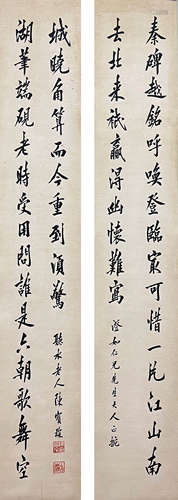 秦碑越銘呼喚登臨冣可惜一片江山南
去北来祇贏得幽懷難寫
澄如仁兄先生大人正
湖筆端硯老時受用問誰是六朝歌舞空
城曉角算而今重到須驚
聽水老人陳寶琛